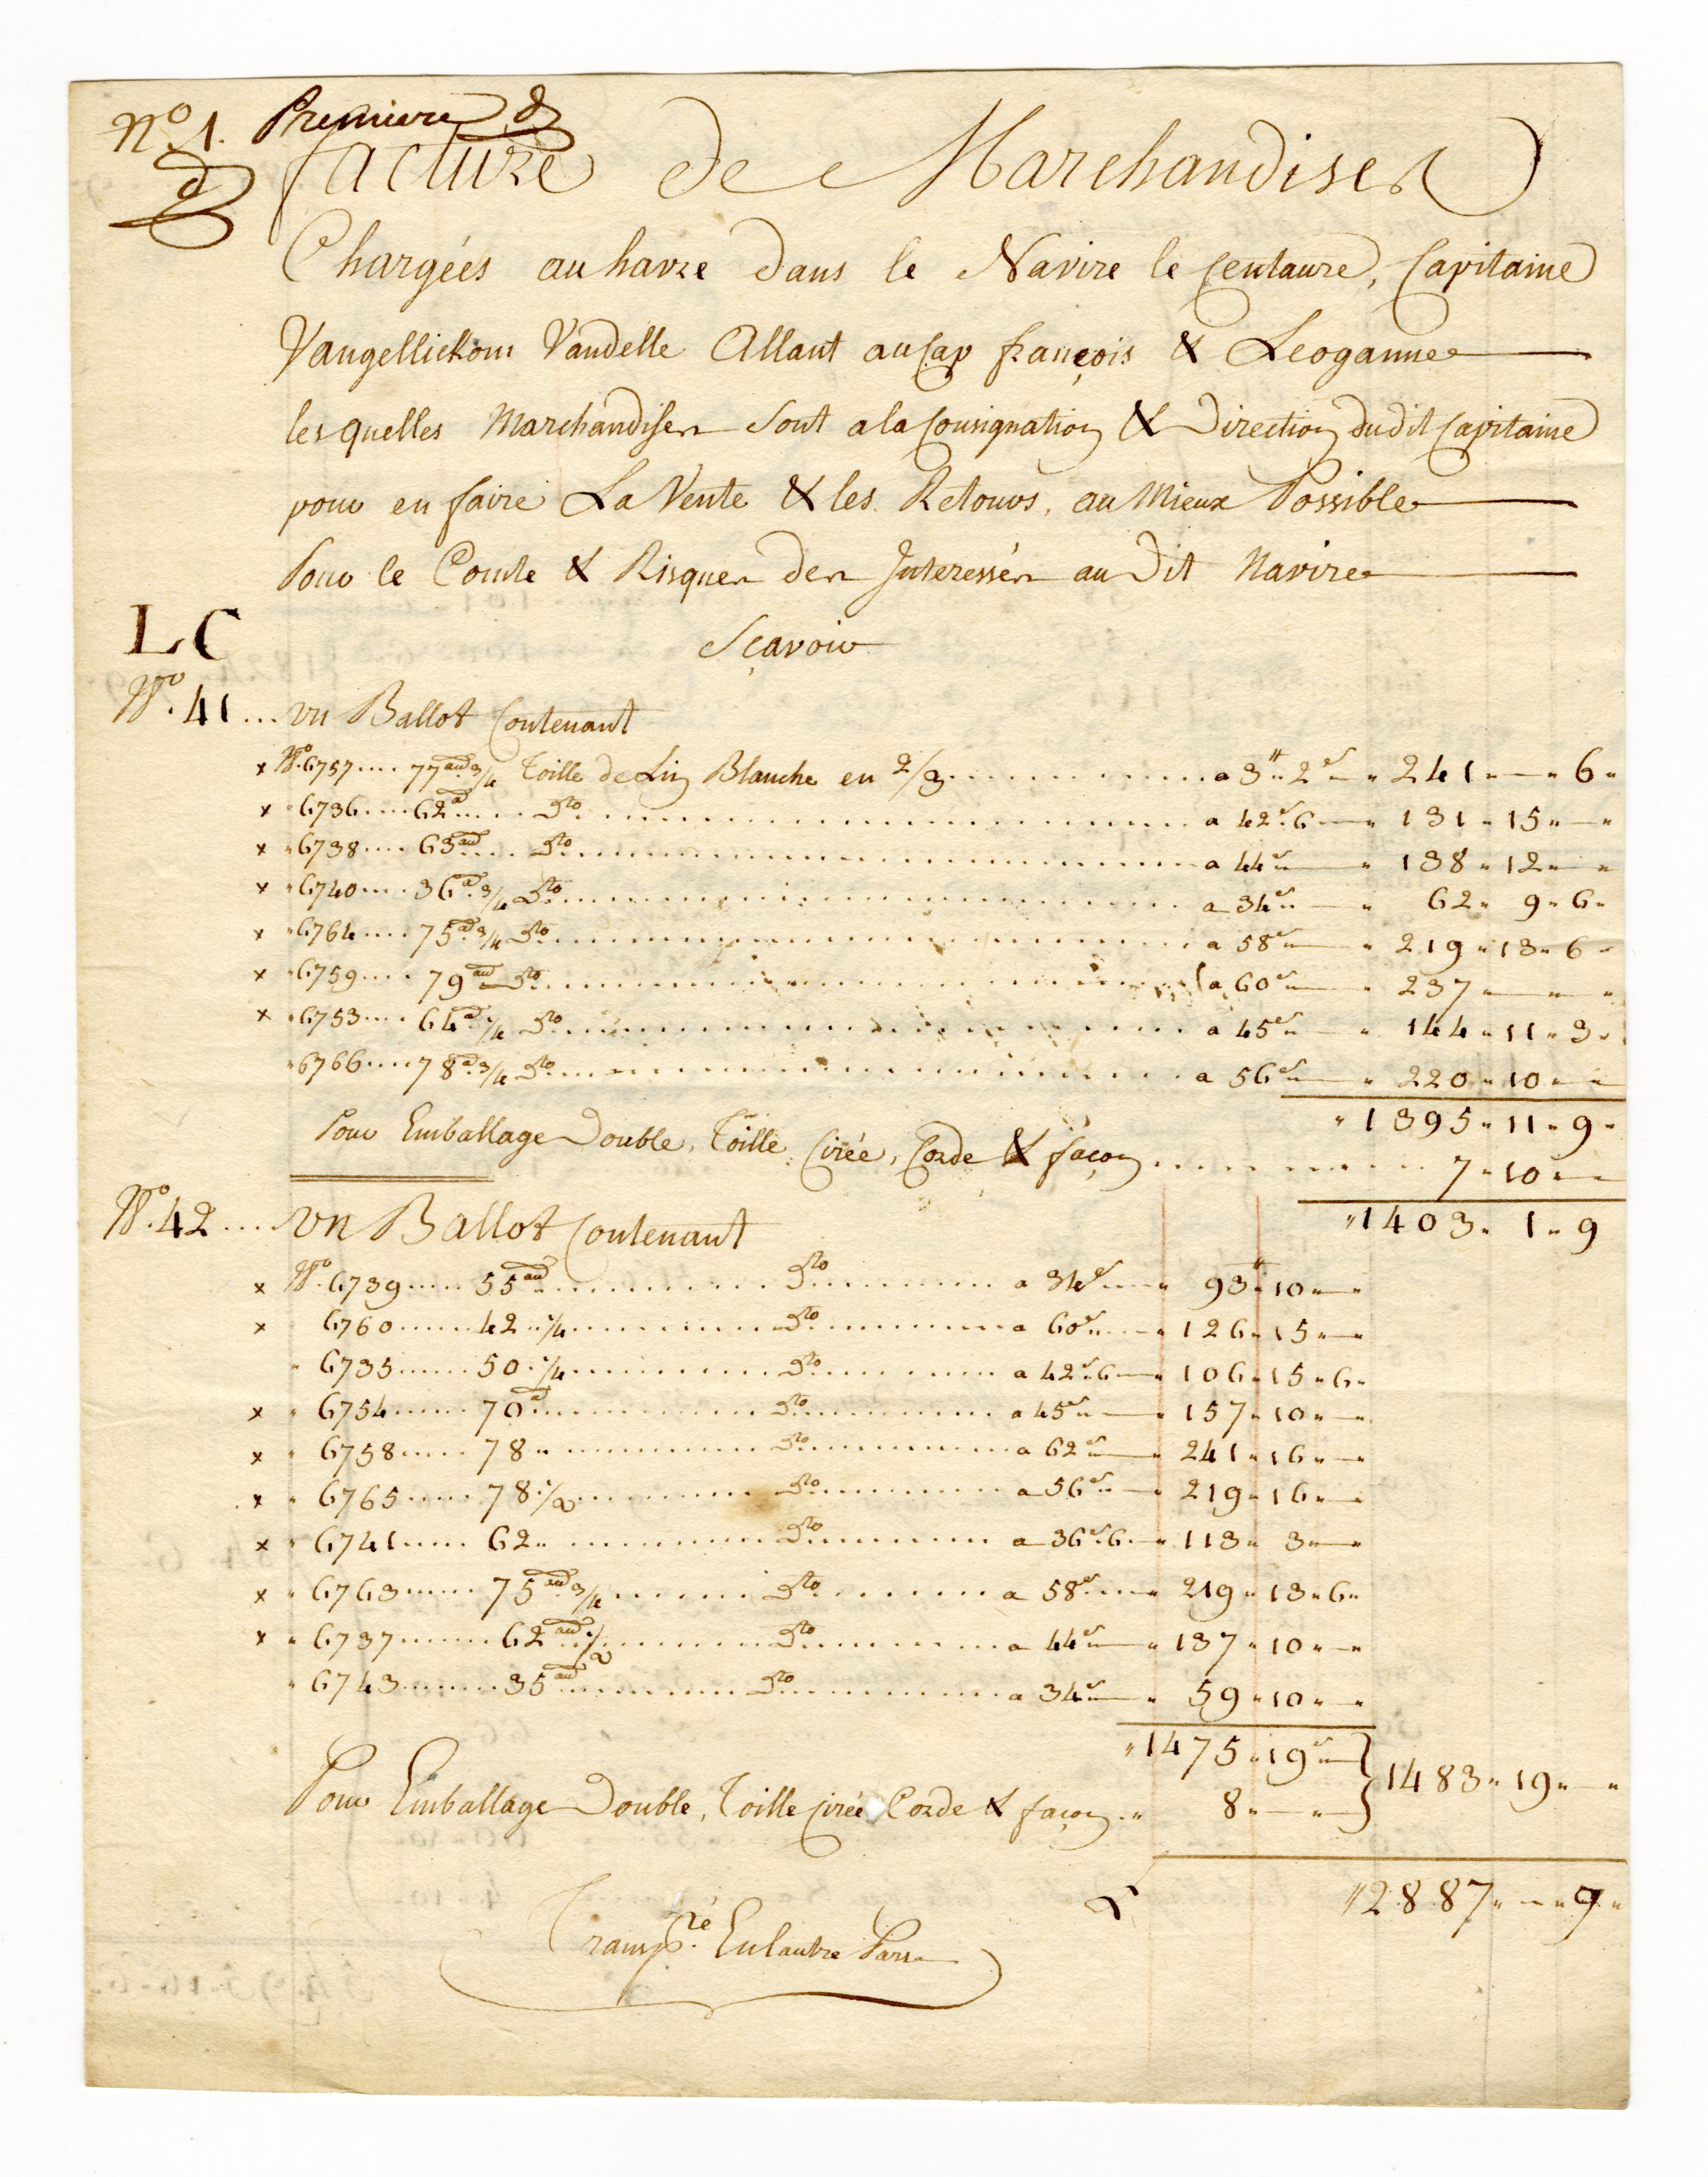 N.º 1. Premiere
facture de Marchandises
Chargées au havre dans le Navire le Centaure, Capitaine
Vangellickom Vandelle Allant au Cap françois & Leoganne
les quelles Marchandises Sont a la Consignation & Direction dudit Capitaine
pour en faire La Vente & les Retours, au Mieux Possible
Pour le Comte & Risques des Interessés au Dit Navire
LC
Sçavoir
N.º 41 ... un Ballot Contenant
x N.º 6757 .... 77 au 3/4 Toille de Lin Blanche en 2/3 .......... a 3tt 2s — 241 " — " 6 "
x " 6736 .... 62 a ..... Dto .......... a 42s 6 — " 131 " 15 " — "
x " 6738 .... 63 au .... Dto .......... a 44s — " 138 " 12 " — "
x " 6740 .... 36 a 3/4 Dto .......... a 34s — " 62 " 9 " 6 "
x " 6764 .... 75 a 3/4 Dto .......... a 58s — " 219 " 13 " 6 "
x " 6759 .... 79 au Dto .......... a 60s — " 237 " — " — "
x " 6753 .... 64 a 1/4 Dto .......... a 45s — " 144 " 11 " 3 "
" 6766 .... 78 a 3/4 Dto .......... a 56s — " 220 " 10 " — "
" 1395 " 11 " 9 "
Pour Emballage Double, Toille Cirée, Corde & façon .......... 7 " 10 " —
" 1403 " 1 " 9
N.º 42 .... un Ballot Contenant
x N.º 6739 ..... 55 au .......... Dto .......... a 34s — " 93tt 10 " — "
x 6760 ...... 42 " 1/4 .......... Dto .......... a 60s — " 126 " 15 " — "
" 6735 ...... 50 " 1/4 .......... Dto .......... a 42s 6 — " 106 " 15 " 6 "
x " 6754 ...... 70 a .......... Dto .......... a 45s — " 157 " 10 " — "
x " 6758 ..... 78 " .......... Dto .......... a 62s — " 241 " 16 " — "
x " 6765 ..... 78 1/2 .......... Dto .......... a 56s — " 219 " 16 " — "
x " 6741 ..... 62 " .......... Dto .......... a 36s 6 — " 113 " 3 " — "
x " 6763 ...... 75 au 3/4 .......... Dto .......... a 58s — " 219 " 13 " 6 "
x " 6737 ....... 62 au 1/2 .......... Dto .......... a 44s — " 137 " 10 " — "
" 6743 ....... 35 au .......... Dto .......... a 34s — " 59 " 10 " — "
" 1475 " 19s — } 1483 " 19 " — "
Pour Emballage Double, Toille Cirée Corde & façon .. " 8 " — " — }
" 2887 " — " 9 "
Transp.ré En lautre Part